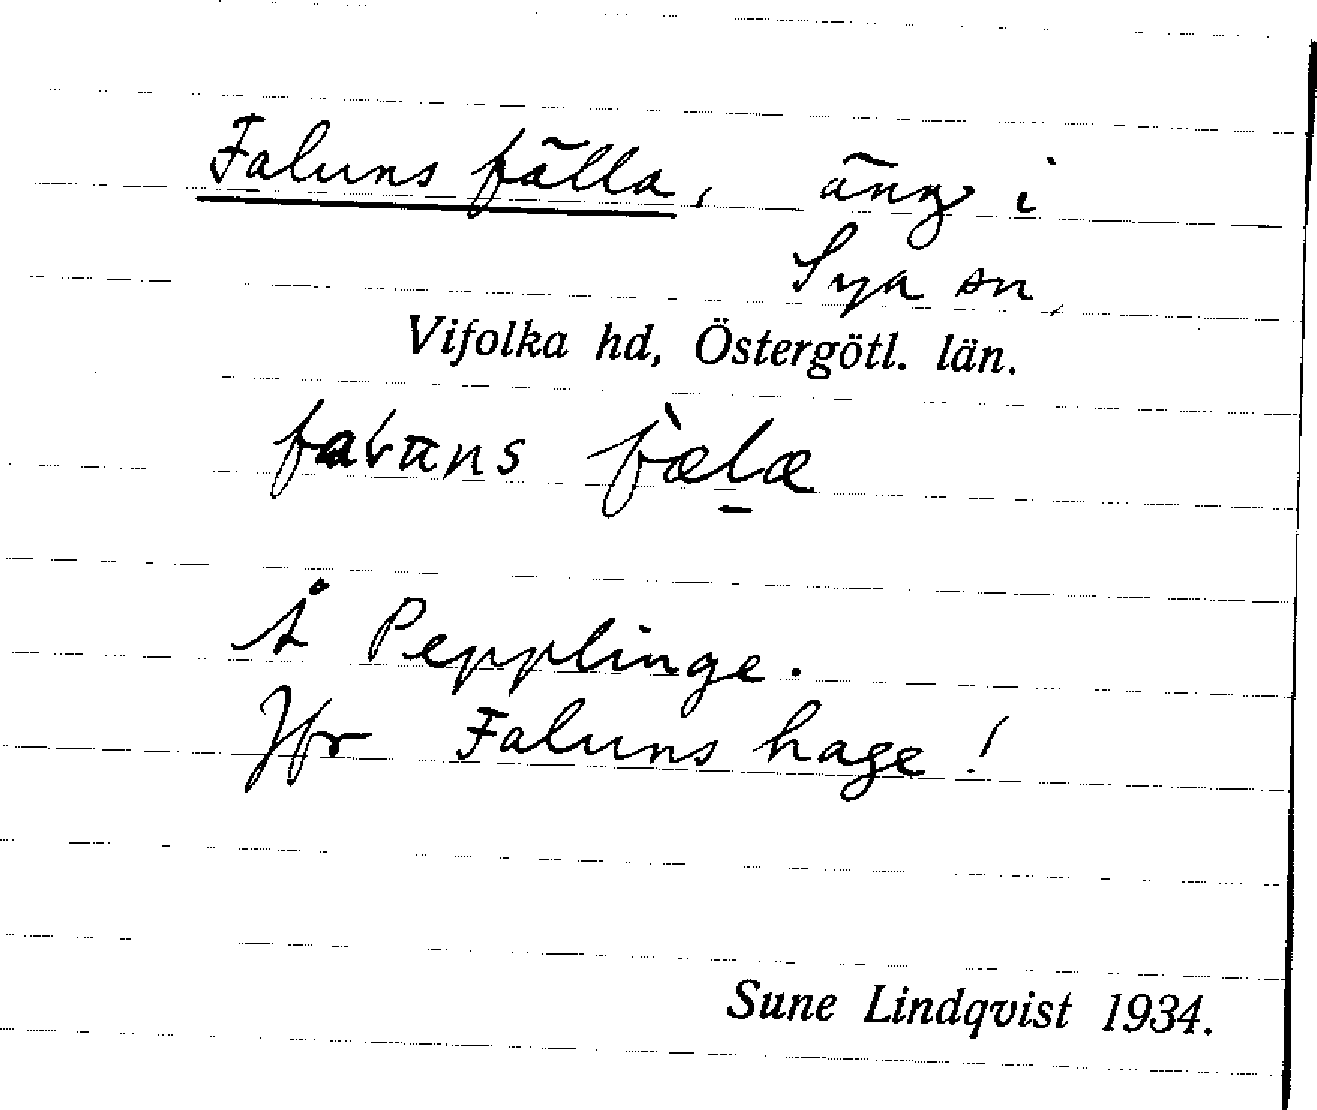 Faluns fälla, äng i
Sya sn,
Vifolka hd, Östergötl. län.
fàl̲æ
Å Pepplinge.
Jfr Faluns hage!
Sune Lindqvist 1934.